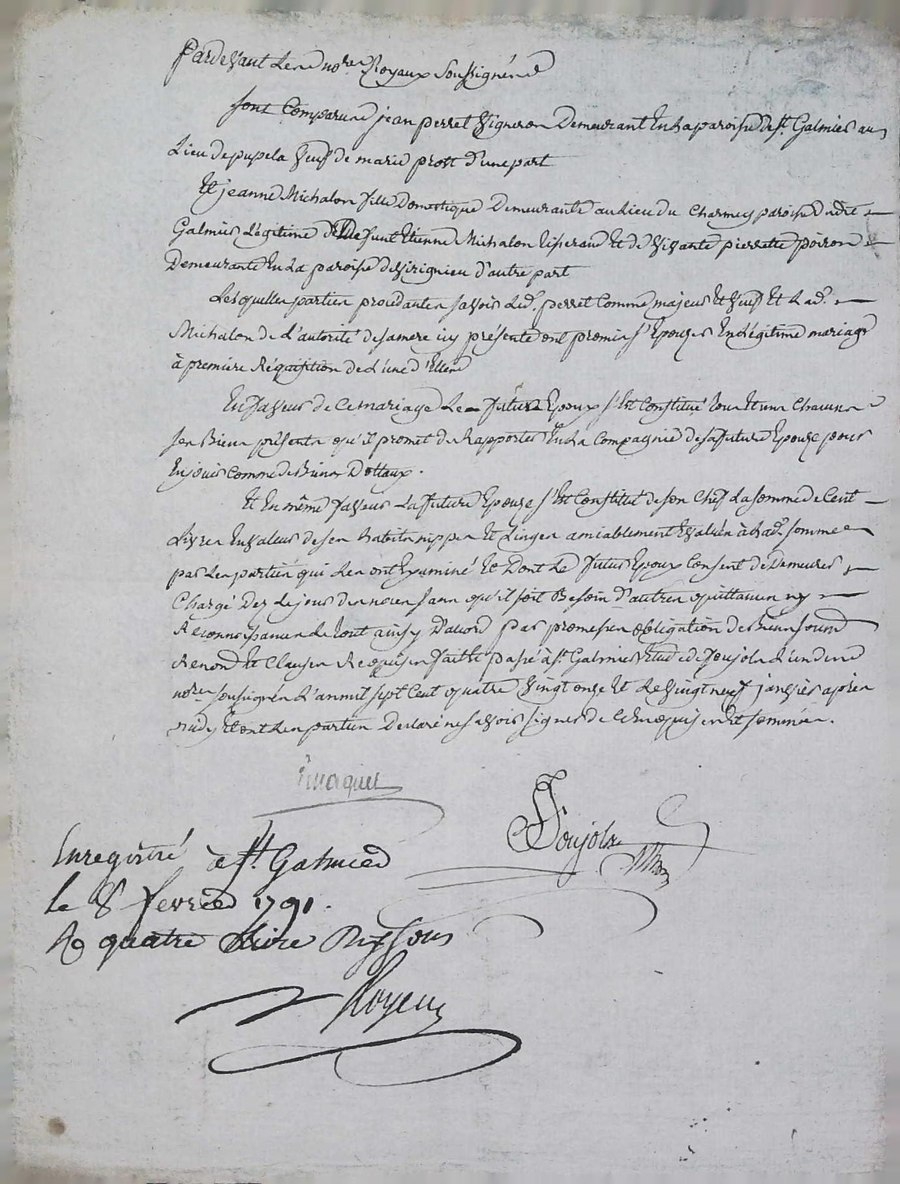 Pardevant Les no.res Royaux Soussignés
sont Comparus jean perret Vigneron Demeurant En La paroisse de St. Galmier au
Lieu de pupela Veuf de marie prott d'une part
Et jeanne Michalon fille Domestique Demeurante au Lieu du Charmey paroisse dudit
Galmier Légitime de Defunt Etienne Michalon Et de Vivante pierrette poiron
Demeurante En La paroisse de Virignieu d'autre part
Lesquelles parties procedantes savoir Led. perret Comme majeur Et Veuf Et Lad.
Michalon de L'autorité de sa mere icy présente ont promis s'Epouser En Légitime mariage
à première Réquisition de L'une d'Elles
En faveur de Ce mariage Le futur Epoux s'Est Constitué tous Et uns Chacuns
ses Biens présents qu'il promet de Rapporter En La Compagnie de sa future Epouse pour
En jouir Comme de Biens Dotaux.
Et En même faveur La future Epouse s'Est Constitué de son Chef La somme de Cent
Livres En valeur de ses habits nippes Et Linges amiablement Evalués à Lad. somme
par Les parties qui Les ont Examiné Et Dont Le futur Epoux Consent de Demeurer
Chargé Dez Le jour des noces sans qu'il soit Besoin d'autres quittances ny
Reconnoissances Le tout ainsy D'acord par promesses obligation de Biens soumd
Renond Et Clauses Requises fait Et passé à St. Galmier Etude de Soujols L'un des
no.res soussignés L'an mil sept Cent quatre Vingt onze Et Le Vingt neuf janvier après
midy Et ont Les parties Declaré ne savoir signer de Ce Enquises Et sommées.
Soujols
Enregistré à St. Galmier
le 8 fevrier 1791.
R quatre Livre Dix sous
Royer